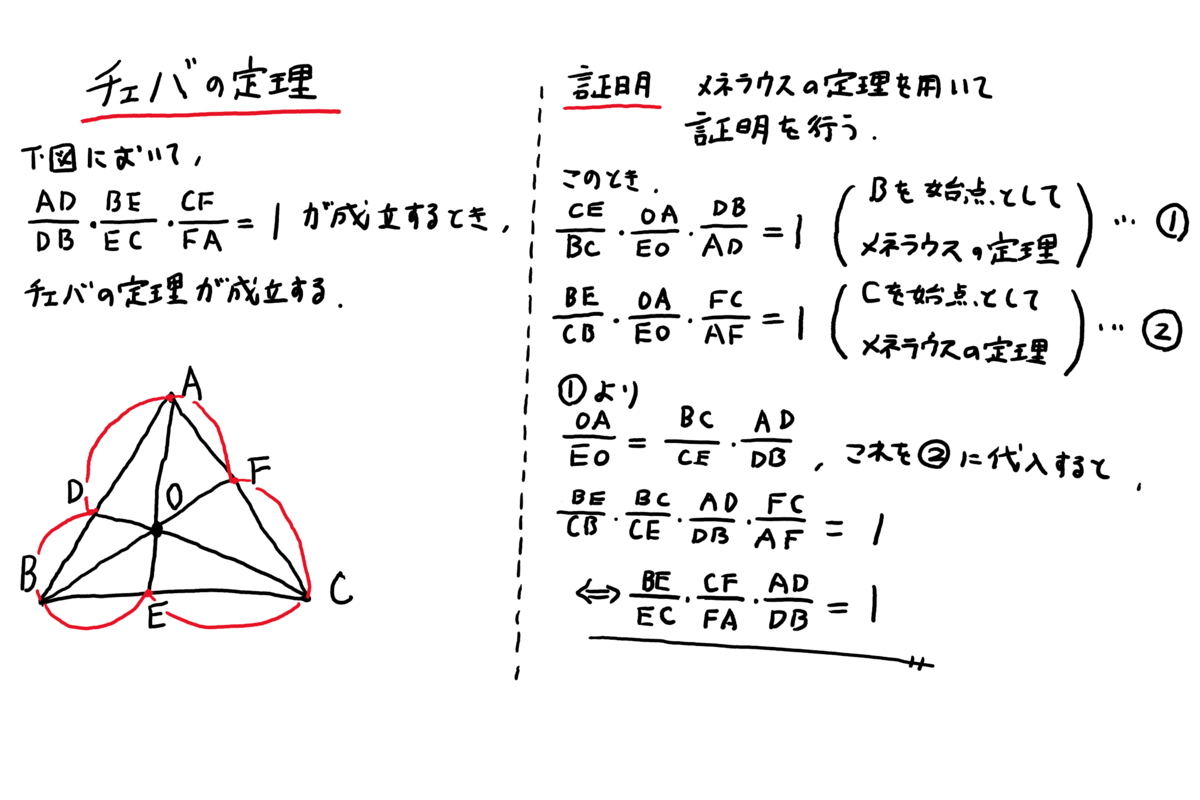 チェバの定理
下図において,
AD/DB・BE/EC・CF/FA = 1 が成立するとき,
チェバの定理が成立する.
A
D
F
O
B
E
C
証明 メネラウスの定理を用いて
証明を行う.
このとき.
CE/BC・OA/EO・DB/AD = 1 (Bを始点として メネラウスの定理) … ①
BE/CB・OA/EO・FC/AF = 1 (Cを始点として メネラウスの定理) … ②
①より
OA/EO = BC/CE・AD/DB , これを②に代入すると,
BE/CB・BC/CE・AD/DB・FC/AF = 1
⇔ BE/EC・CF/FA・AD/DB = 1